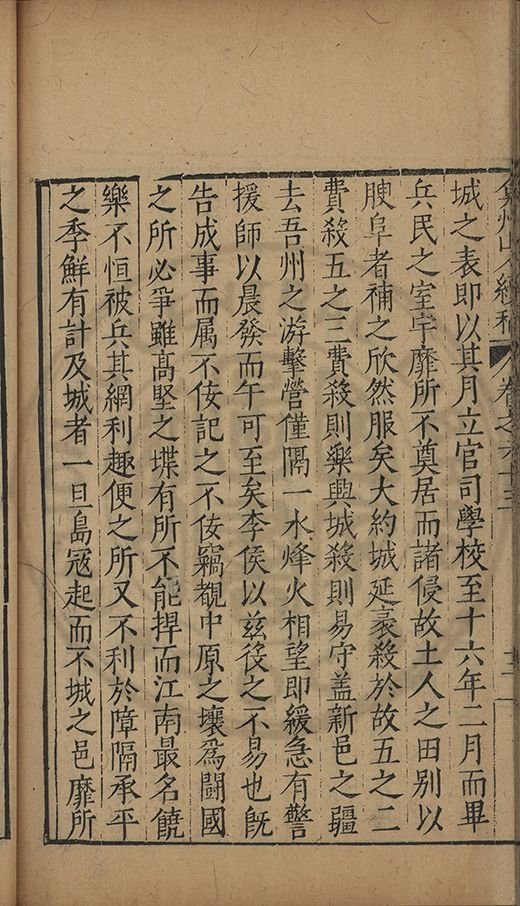 弇州山人續稿 卷之六十三 十一
城之表即以其月立官司學校至十六年二月而畢
兵民之室宇靡所不奠居而諸侵故土人之田别以
腴阜者補之欣然服矣大約城延袤殺於故五之二
費殺五之三費殺則藥興城殺則易守盖新邑之疆
去吾州之游擊營僅隔一水烽火相望即緩急有警
援師以晨發而午可至矣李侯以兹役之不易也旣
告成事而属不佞記之不佞竊覩中原之壤爲闘國
之所必爭雖高堅之堞有所不能捍而江南最名饒
樂不恒被兵其網利趣便之所又不利於障隔承平
之季鮮有計及城者一旦島冦起而不城之邑靡所